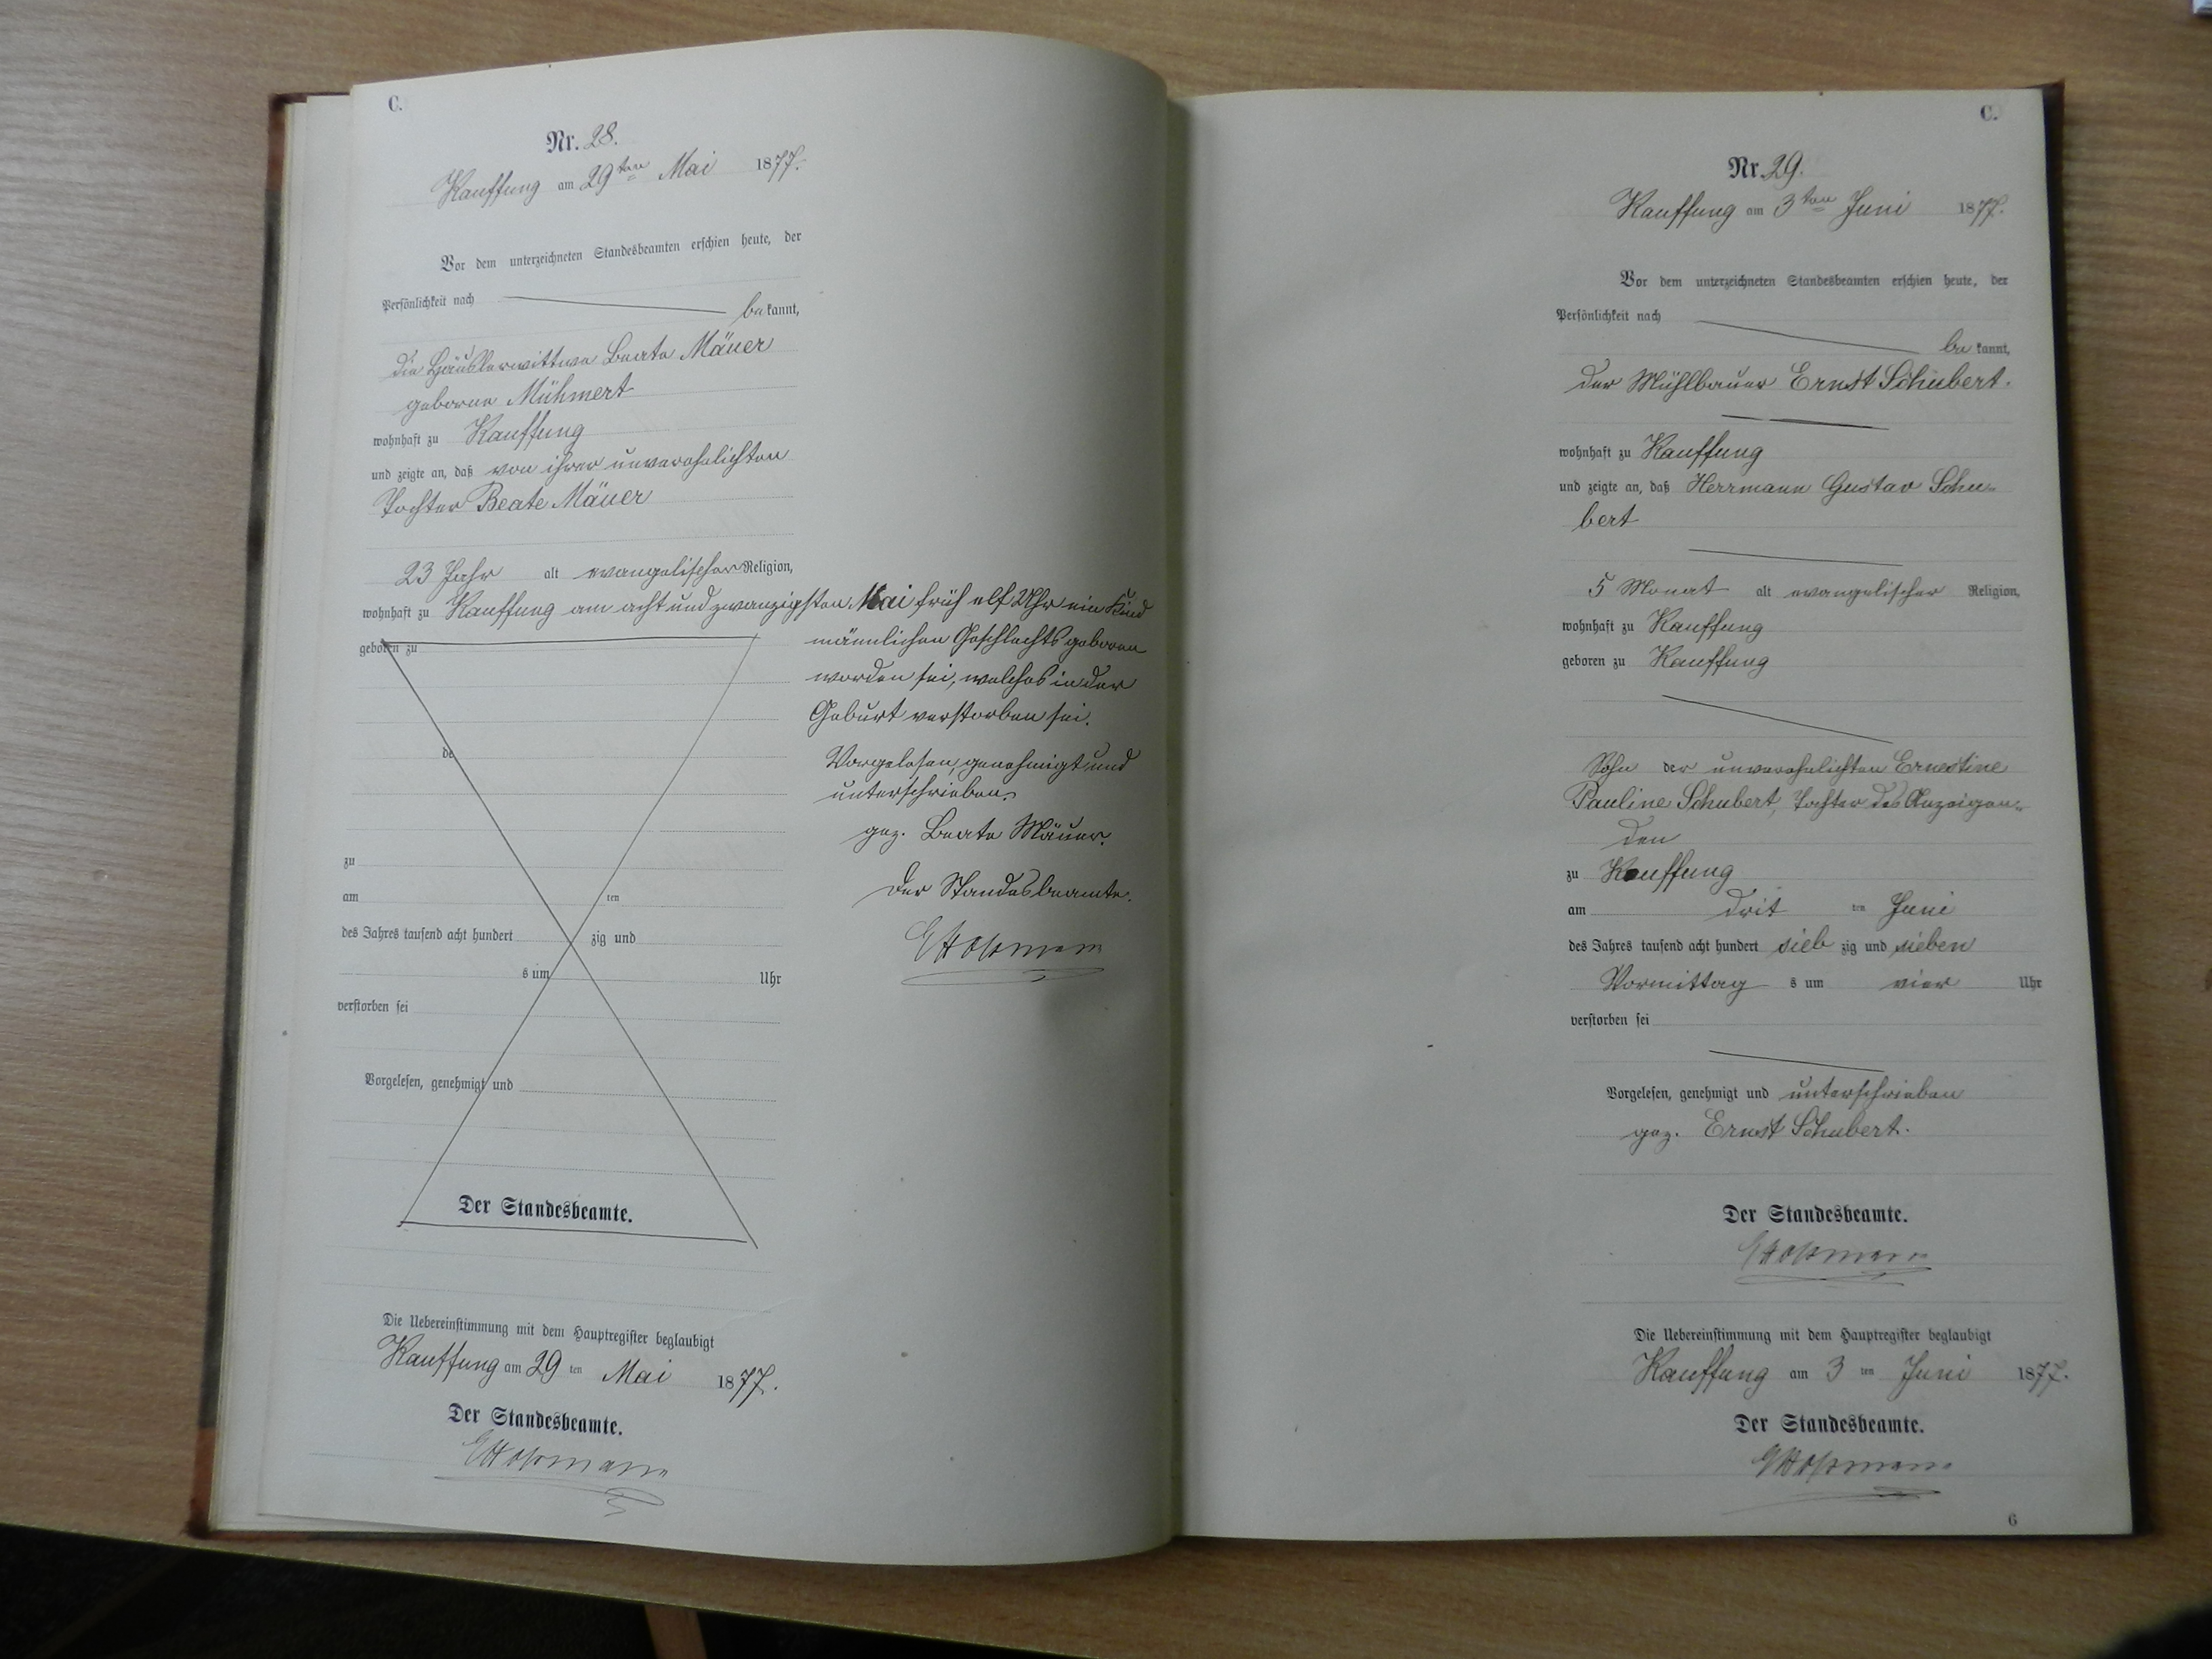 C.
Nr. 28.
Kauffung am 29ten Mai 1877.
Vor dem unterzeichneten Standesbeamten erschien heute, der
Persönlichkeit nach
bekannt,
die Häuslerwittwe Beate Mäuer
geborne Mühmert
wohnhaft zu Kauffung
und zeigte an, daß von ihrer unverehelichten
Tochter Beate Mäuer
23 Jahr alt evangelischer Religion,
wohnhaft zu Kauffung am acht und zwanzigsten Mai früh elf Uhr ein Kind
geboren zu
männlichen Geschlechts geboren
worden sei, welches in der
Geburt verstorben sei.
Vorgelesen, genehmigt und
unterschrieben.
gez. Beate Mäuer.
Der Standesbeamte.
de
zu
am ten
des Jahres tausend acht hundert zig und
s um Uhr
verstorben sei
Vorgelesen, genehmigt und
Der Standesbeamte.
Die Uebereinstimmung mit dem Hauptregister beglaubigt
Kauffung am 29 ten Mai 1877.
Der Standesbeamte.
C.
Nr. 29.
Kauffung am 3ten Juni 1877.
Vor dem unterzeichneten Standesbeamten erschien heute, der
Persönlichkeit nach
bekannt,
der Mühlbauer Ernst Schubert.
wohnhaft zu Kauffung
und zeigte an, daß Herrmann Gustav Schu-
bert
5 Monat alt evangelischer Religion,
wohnhaft zu Kauffung
geboren zu Kauffung
Sohn der unverehelichten Ernestine
Pauline Schubert, Tochter des Anzeigen-
den
zu Kauffung
am drit ten Juni
des Jahres tausend acht hundert sieb zig und sieben
Vormittag s um vier Uhr
verstorben sei
Vorgelesen, genehmigt und unterschrieben
gez. Ernst Schubert.
Der Standesbeamte.
Die Uebereinstimmung mit dem Hauptregister beglaubigt
Kauffung am 3 ten Juni 1877.
Der Standesbeamte.
6